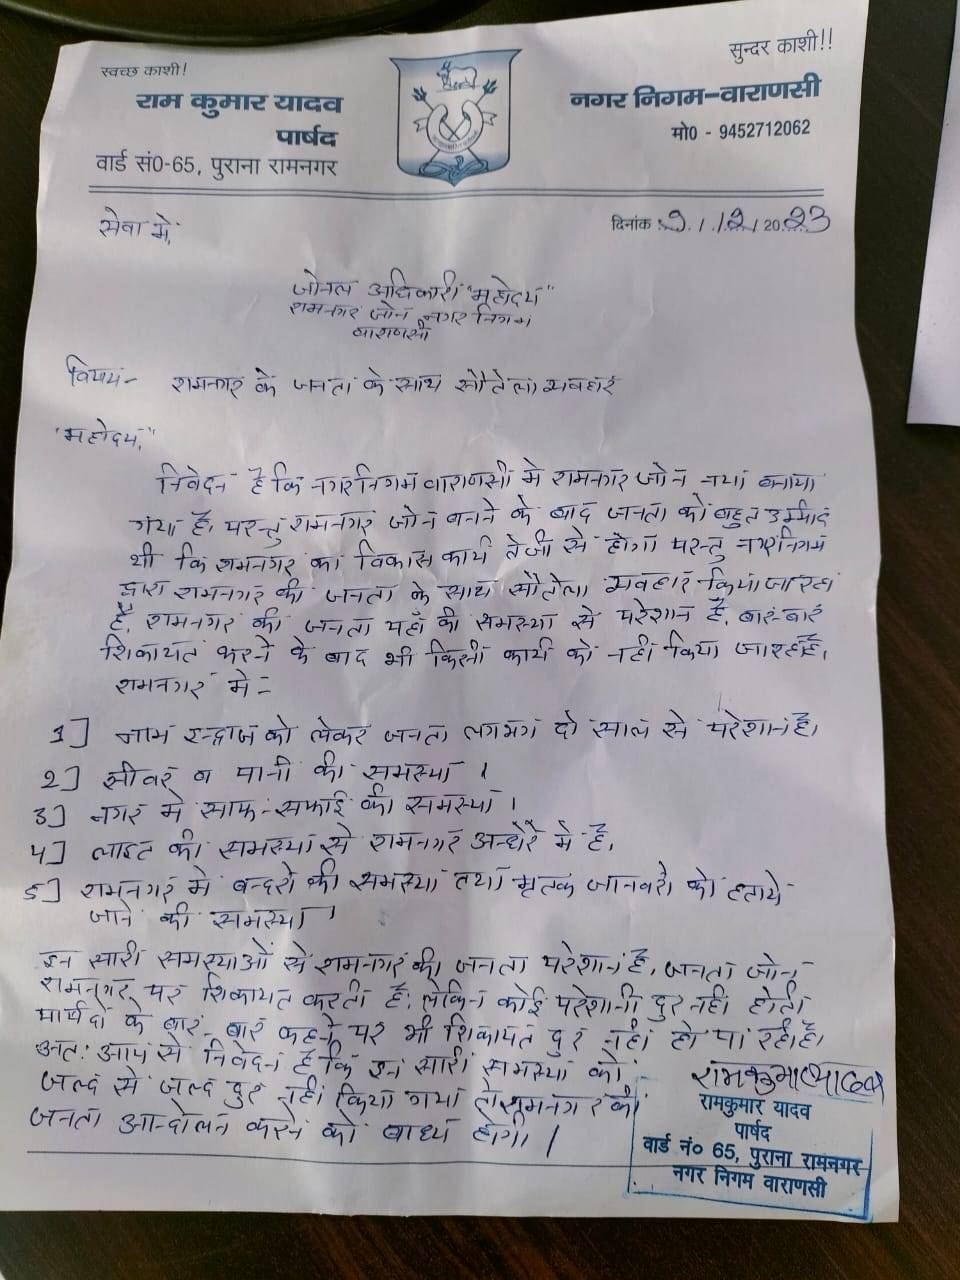 स्वच्छ काशी!
सुन्दर काशी!!
राम कुमार यादव
नगर निगम-वाराणसी
पार्षद
मो0 - 9452712062
वार्ड सं0-65, पुराना रामनगर
सेवा में,
दिनांक 9/12/2023
जोनल अधिकारी "महोदय"
रामनगर जोन नगर निगम
वाराणसी
विषय:- रामनगर के जनता के साथ सौतेला व्यवहार
"महोदय,"
निवेदन है कि नगर निगम वाराणसी में रामनगर जोन नया बनाया
गया है। परन्तु रामनगर जोन बनने के बाद जनता को बहुत उम्मीद
थी कि रामनगर का विकास कार्य तेजी से होगा परन्तु नगर निगम
द्वारा रामनगर की जनता के साथ सौतेला व्यवहार किया जा रहा
है, रामनगर की जनता यहाँ की समस्या से परेशान है, बार-बार
शिकायत करने के बाद भी किसी कार्य को नहीं किया जा रहा है।
रामनगर में :-
1] नाम इन्द्राज को लेकर जनता लगभग दो साल से परेशान है।
2] सीवर व पानी की समस्या।
3] नगर में साफ-सफाई की समस्या।
4] लाइट की समस्या से रामनगर अन्धेरे में है,
5] रामनगर में बन्दरों की समस्या तथा मृतक जानवरों को हटाये
जाने की समस्या।
इन सारी समस्याओं से रामनगर की जनता परेशान है, जनता जोन
रामनगर पर शिकायत करती है, लेकिन कोई परेशानी दुर नही होती
पार्षदों के बार बार कहने पर भी शिकायत दुर नहीं हो पा रही है।
अत: आप से निवेदन है कि इन सारी समस्या को
जल्द से जल्द दुर नहीं किया गया तो रामनगर की
जनता आन्दोलन करने को बाध्य होगी।
रामकुमार यादव
रामकुमार यादव
पार्षद
वार्ड नं० 65, पुराना रामनगर
नगर निगम वाराणसी